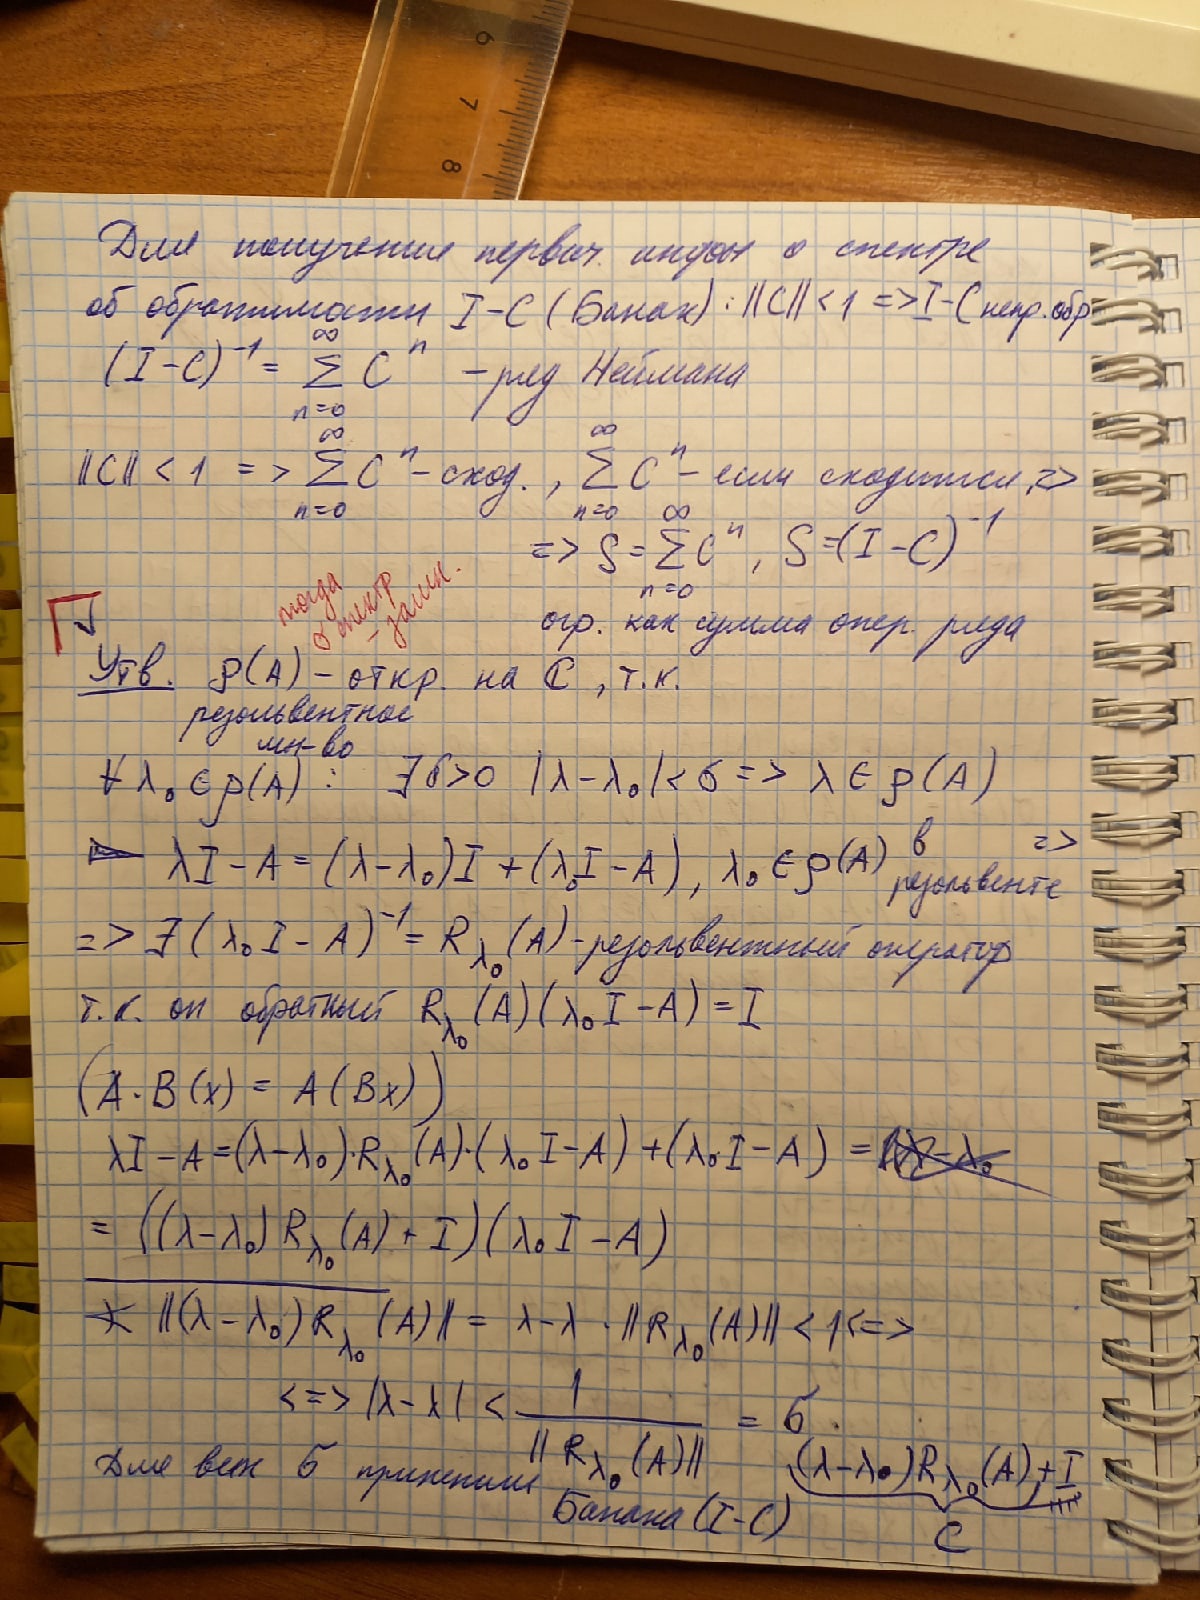 6
7
8
Для получения первич. инфы о спектре
об обратимости I-C (Банах): ||C|| < 1 => I-C непр. обр
(I-C)⁻¹ = ∑_{n=0}^{∞} Cⁿ - ряд Неймана
||C|| < 1 => ∑_{n=0}^{∞} Cⁿ - сход., ∑_{n=0}^{∞} Cⁿ - если сходится, =>
=> S = ∑_{n=0}^{∞} Cⁿ, S = (I-C)⁻¹
огр. как сумма опер. ряда
тогда
σ спектр
- замк.
Утв. ρ(A) - откр. на ℂ, т.к.
резольвентное
мн-во
∀ λ₀ ∈ ρ(A) : ∃ б>0 |λ-λ₀| < б => λ ∈ ρ(A)
λI - A = (λ-λ₀)I + (λ₀I - A), λ₀ ∈ ρ(A) в резольвенте =>
=> ∃ (λ₀I - A)⁻¹ = R_{λ₀}(A) - резольвентный оператор
т.к. он обратный R_{λ₀}(A)(λ₀I - A) = I
(A·B(x) = A(Bx))
λI - A = (λ-λ₀)·R_{λ₀}(A)·(λ₀I - A) + (λ₀·I - A) =
= ((λ-λ₀) R_{λ₀}(A) + I)(λ₀I - A)
* ||(λ-λ₀)R_{λ₀}(A)|| = λ-λ · ||R_{λ₀}(A)|| < 1 <=>
<=> |λ-λ| < 1 / ||R_{λ₀}(A)|| = б
Для всех б применим
Банаха (I-C)
(λ-λ₀)R_{λ₀}(A) + I
C